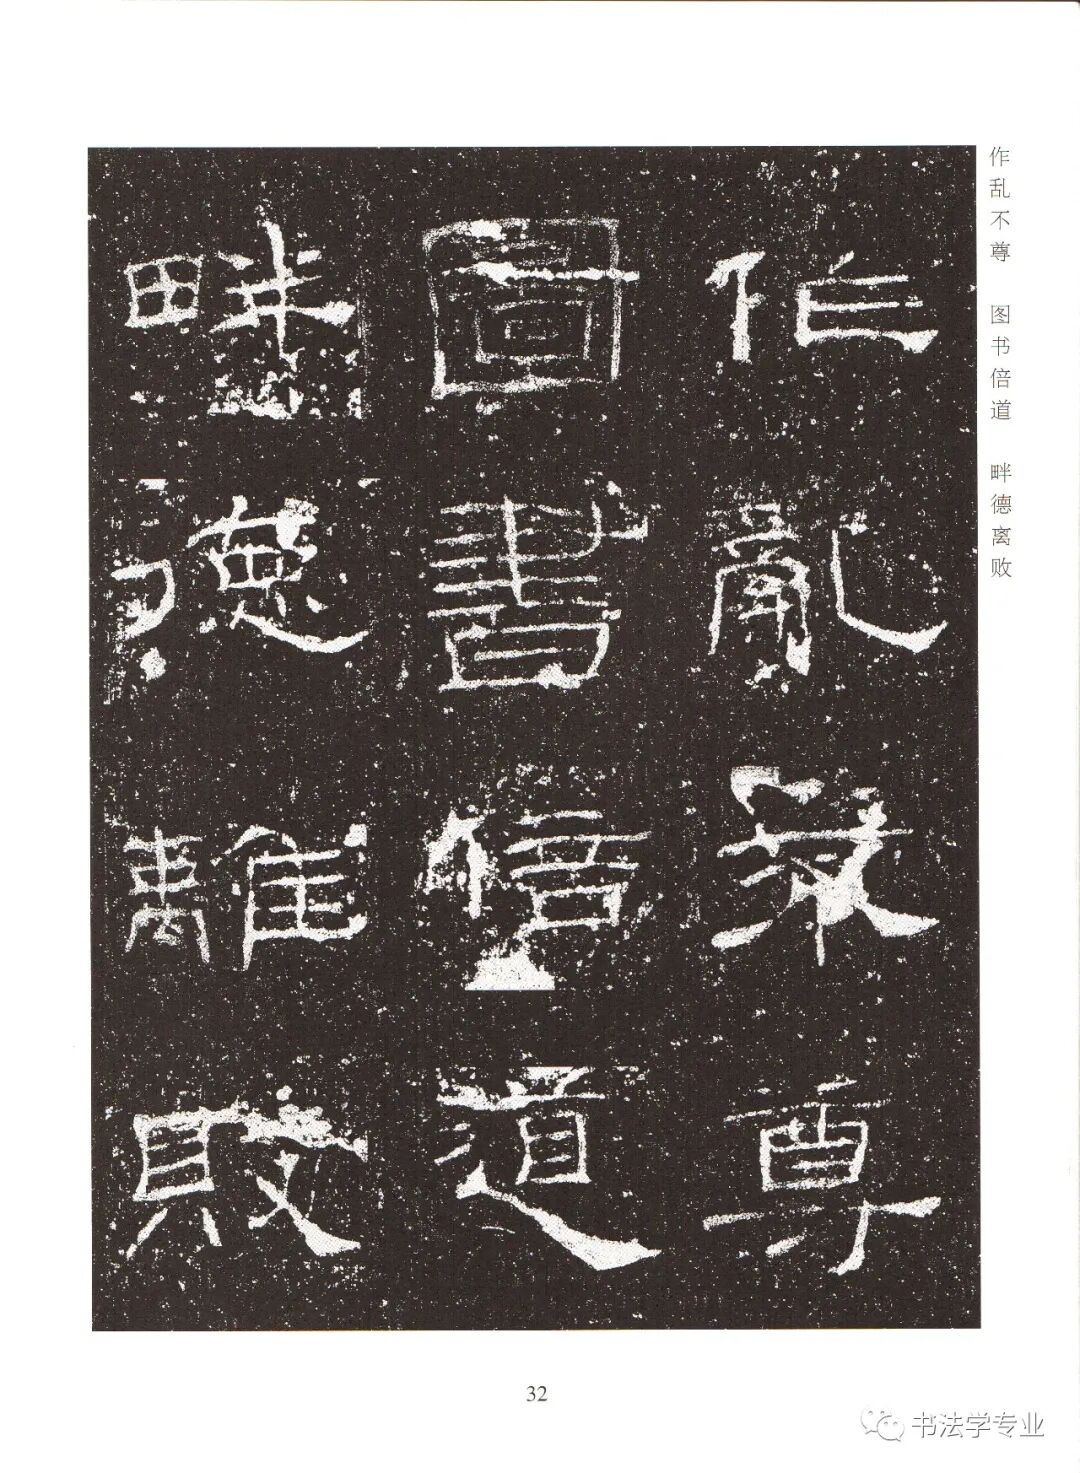 作亂不尊
圖書倍道
畔德離敗
作乱不尊 图书倍道 畔德离败
32
书法学专业